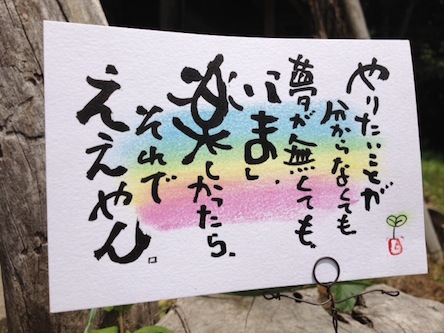 やりたいことが
分からなくても
夢が無くても、
いま
楽しかったら、
それで
ええやん。